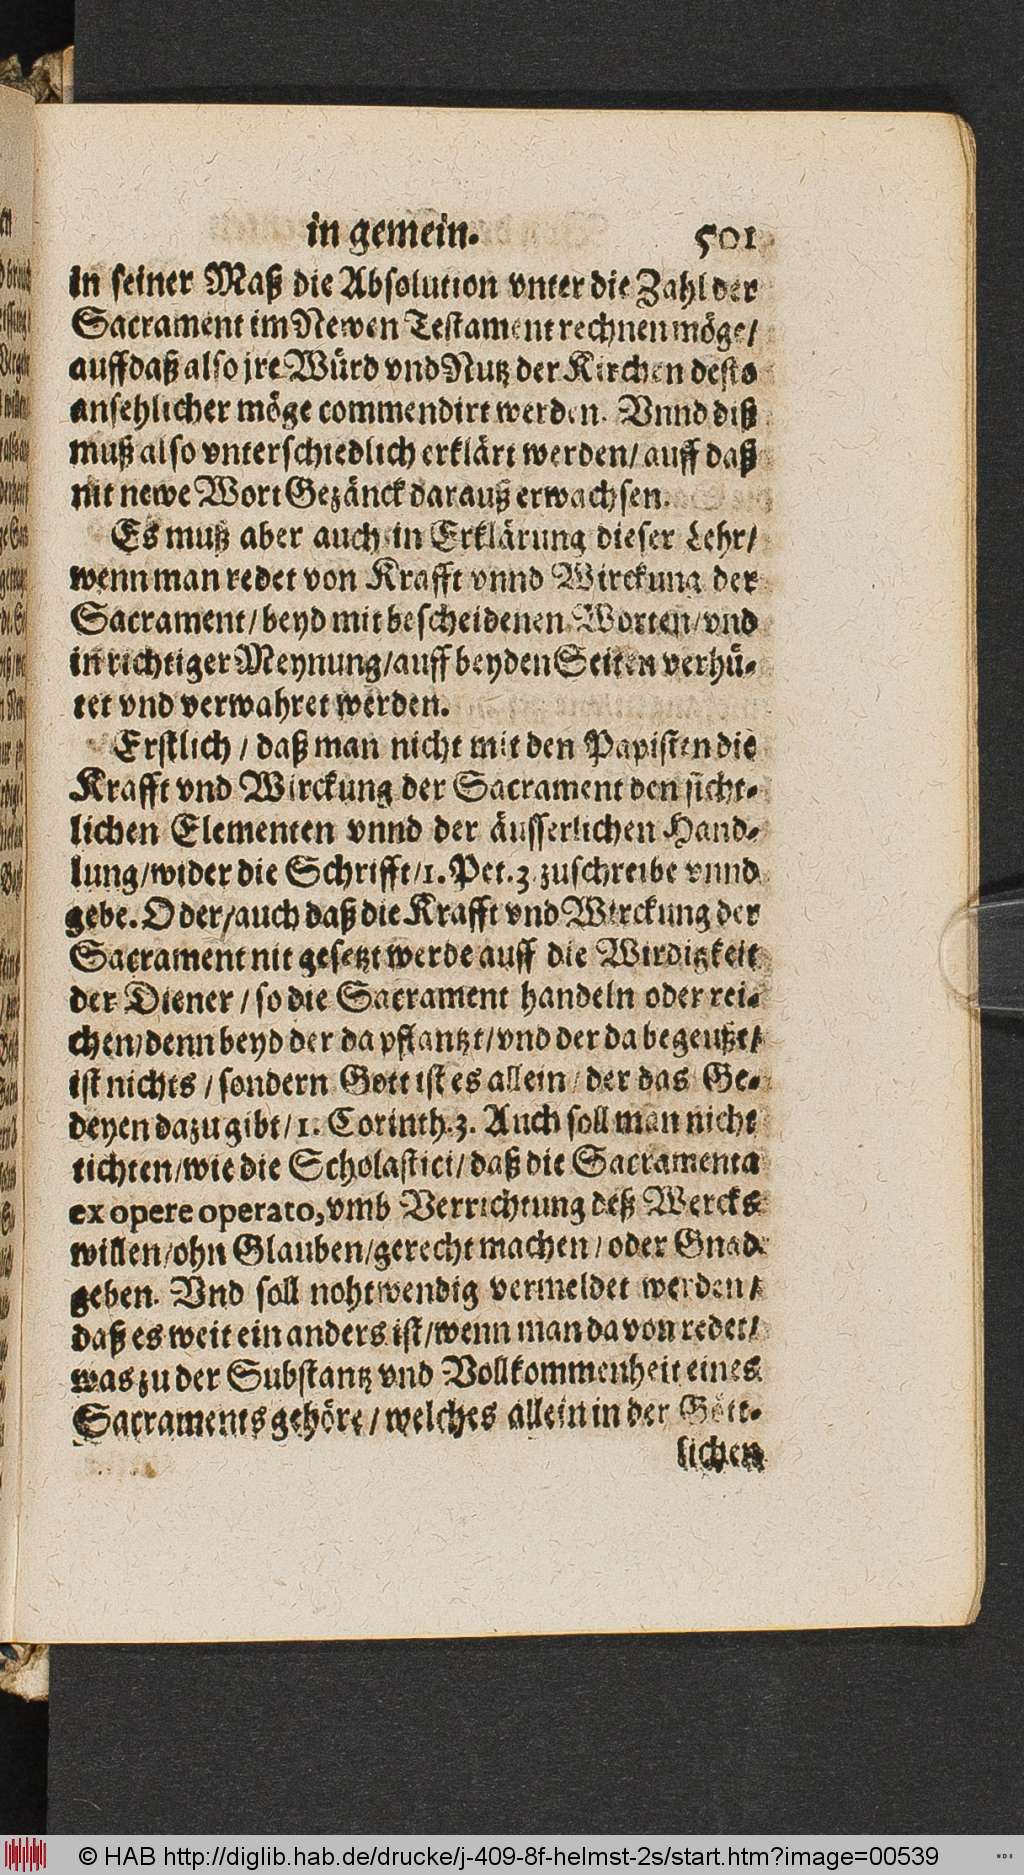 in gemein. 501
in seiner Maß die Absolution vnter die Zahl der
Sacrament im Newen Testament rechnen möge/
auff daß also jre Würd vnd Nutz der Kirchen desto
ansehlicher möge commendirt werden. Vnnd diß
muß also vnterschiedlich erklärt werden/ auff daß
nit newe Wort Gezänck darauß erwachsen.
Es muß aber auch in Erklärung dieser Lehr/
wenn man redet von Krafft vnnd Wirckung der
Sacrament/ beyd mit bescheidenen Worten/ vnd
in richtiger Meynung/ auff beyden Seiten verhü-
tet vnd verwahret werden.
Erstlich / daß man nicht mit den Papisten die
Krafft vnd Wirckung der Sacrament den sicht-
lichen Elementen vnnd der äusserlichen Hand-
lung/ wider die Schrifft/ 1. Pet. 3. zuschreibe vnnd
gebe. Oder/ auch daß die Krafft vnd Wirckung der
Sacrament nit gesetzt werde auff die Wirdigkeit
der Diener / so die Sacrament handeln oder rei-
chen/ denn beyd der da pflantzt/ vnd der da begeußt/
ist nichts / sondern Gott ist es allein / der das Ge-
deyen dazu gibt/ 1. Corinth. 3. Auch soll man nicht
tichten/ wie die Scholastici/ daß die Sacramenta
ex opere operato, vmb Verrichtung deß Wercks
willen/ ohn Glauben/ gerecht machen / oder Gnade
geben. Vnd soll nohtwendig vermeldet werden/
daß es weit ein anders ist/ wenn man da von redet/
was zu der Substantz vnd Vollkommenheit eines
Sacraments gehöre / welches allein in der Gött-
lichen
© HAB http://diglib.hab.de/drucke/j-409-8f-helmst-2s/start.htm?image=00539